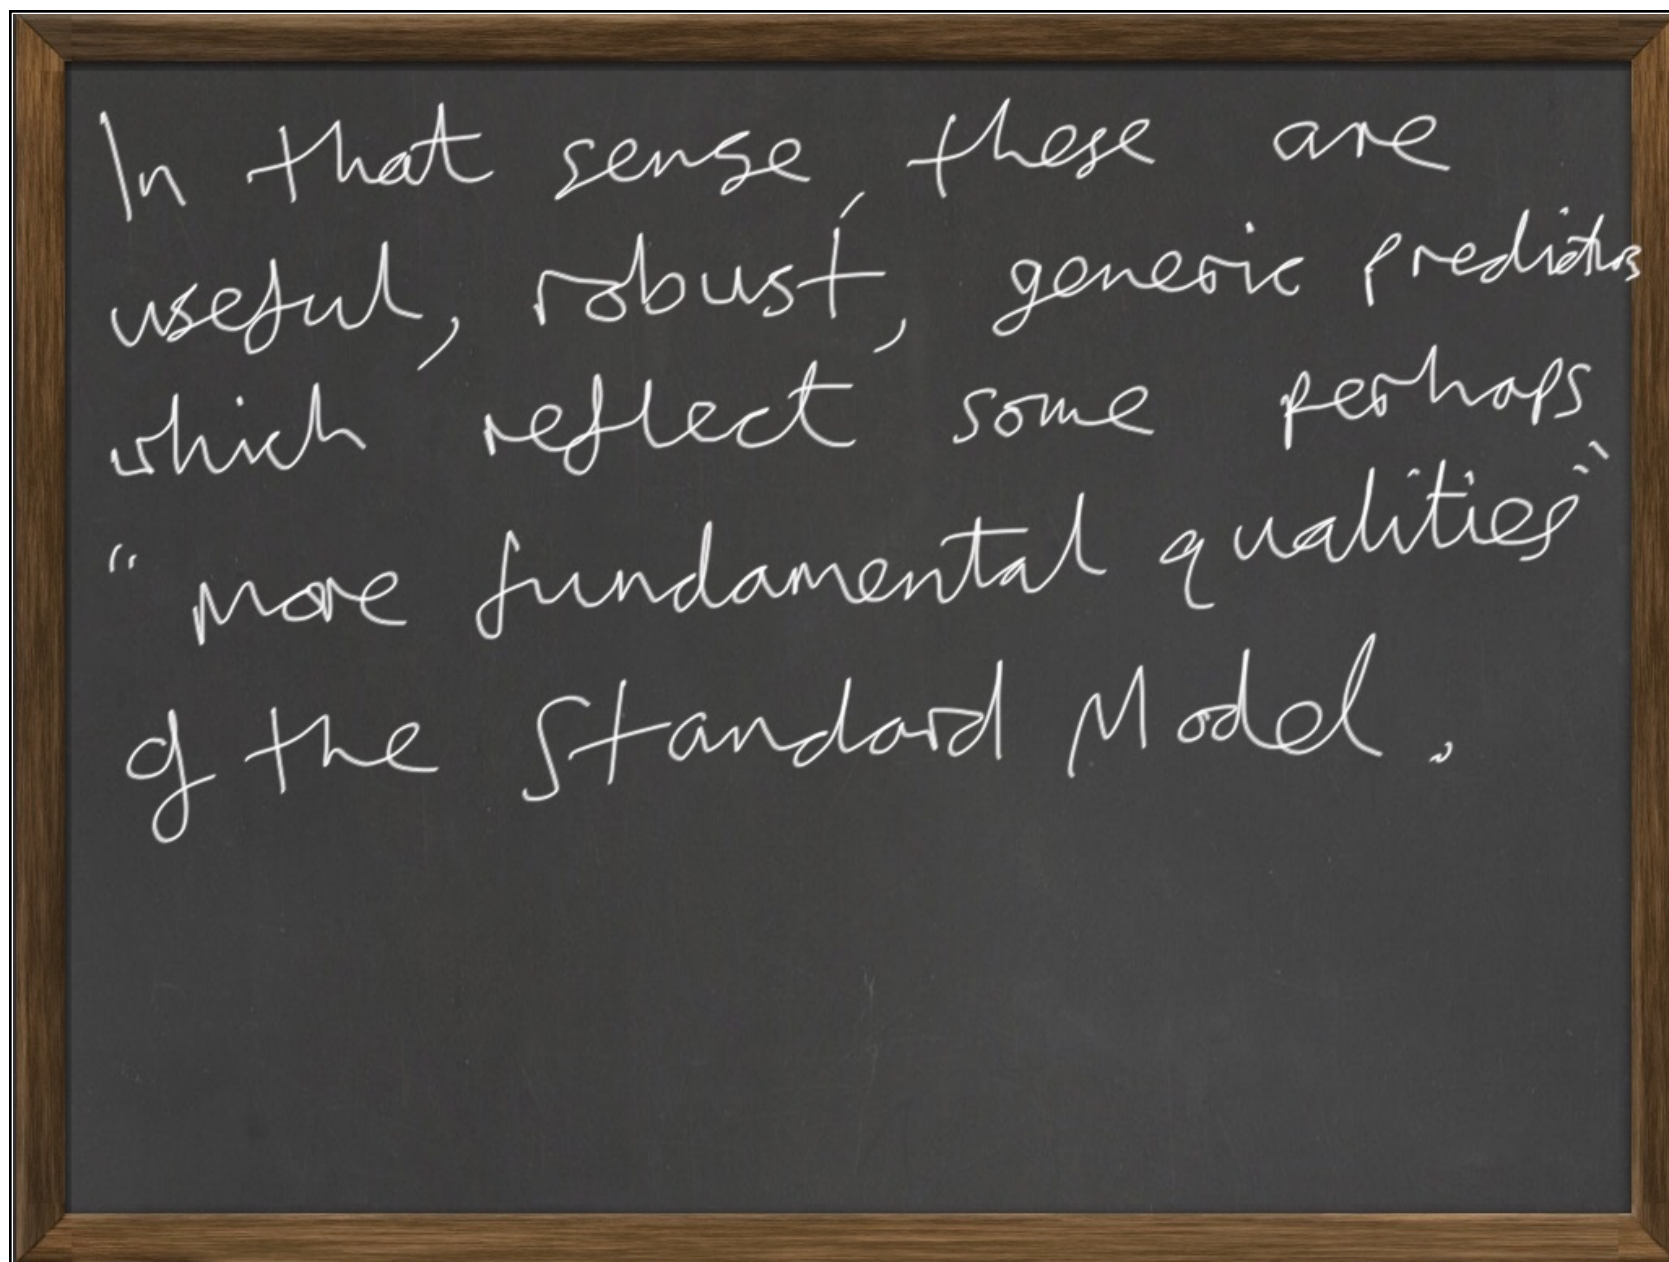 In that sense, these are
useful, robust, generic predictions
which reflect some perhaps
"more fundamental qualities"
of the Standard Model.